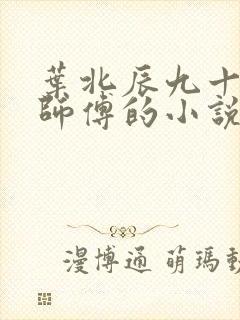 葉北辰九十
師傅的小說
漫博通 萌瑪動